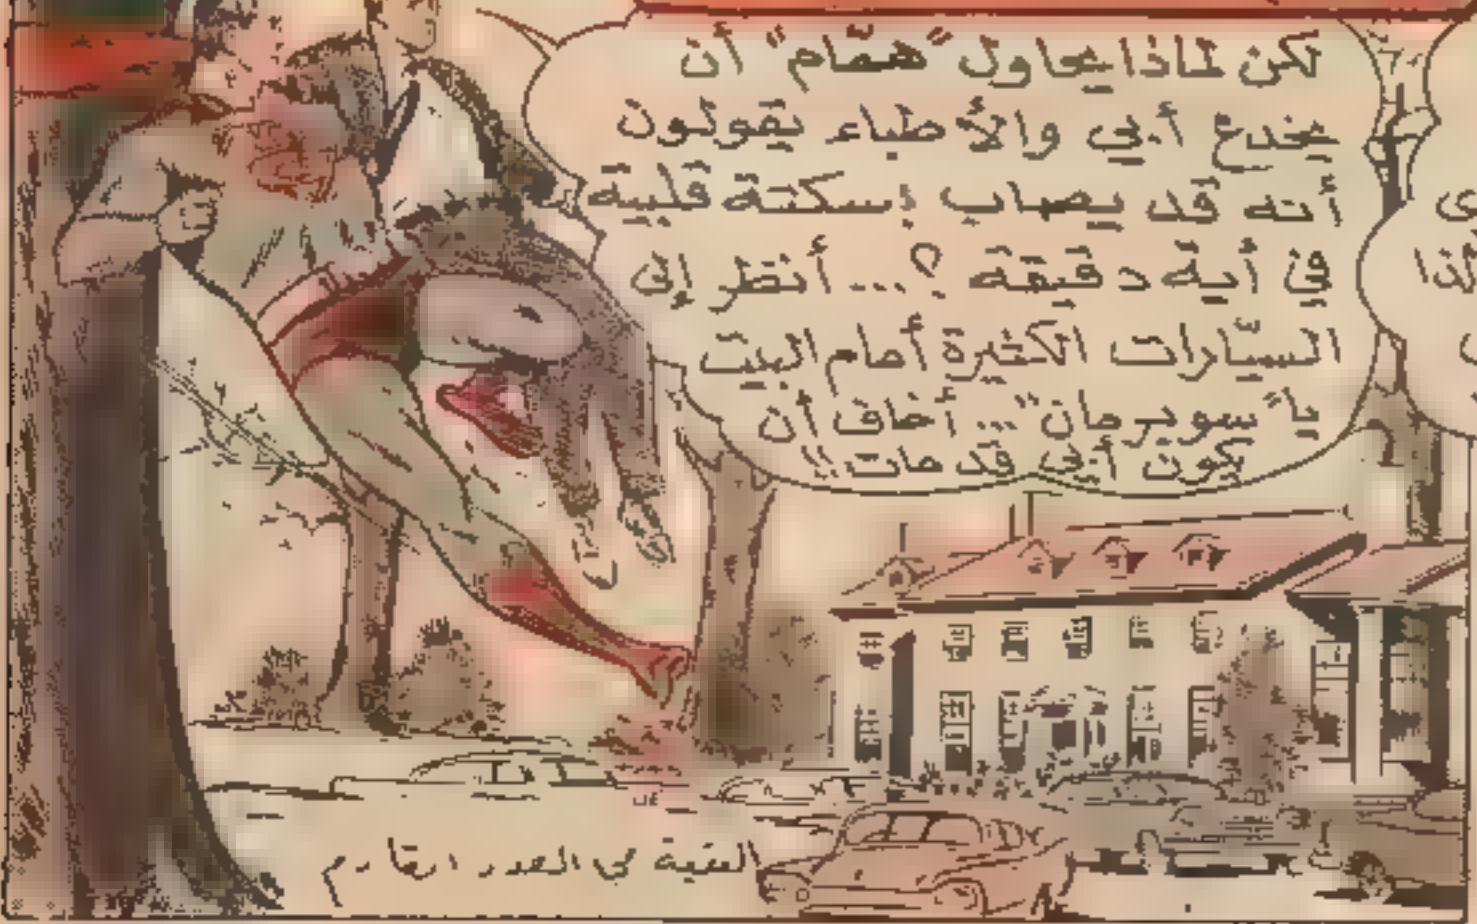 لكن لماذا يحاول "همّام" أن
يخدع أبي والأطباء يقولون
أنه قد يصاب بسكتة قلبية
في أية دقيقة ؟... أنظر إلى
السيّارات الكثيرة أمام البيت
يا "سوبرمان"... أخاف أن
يكون أبي قد مات !!
البقية في العدد القادم